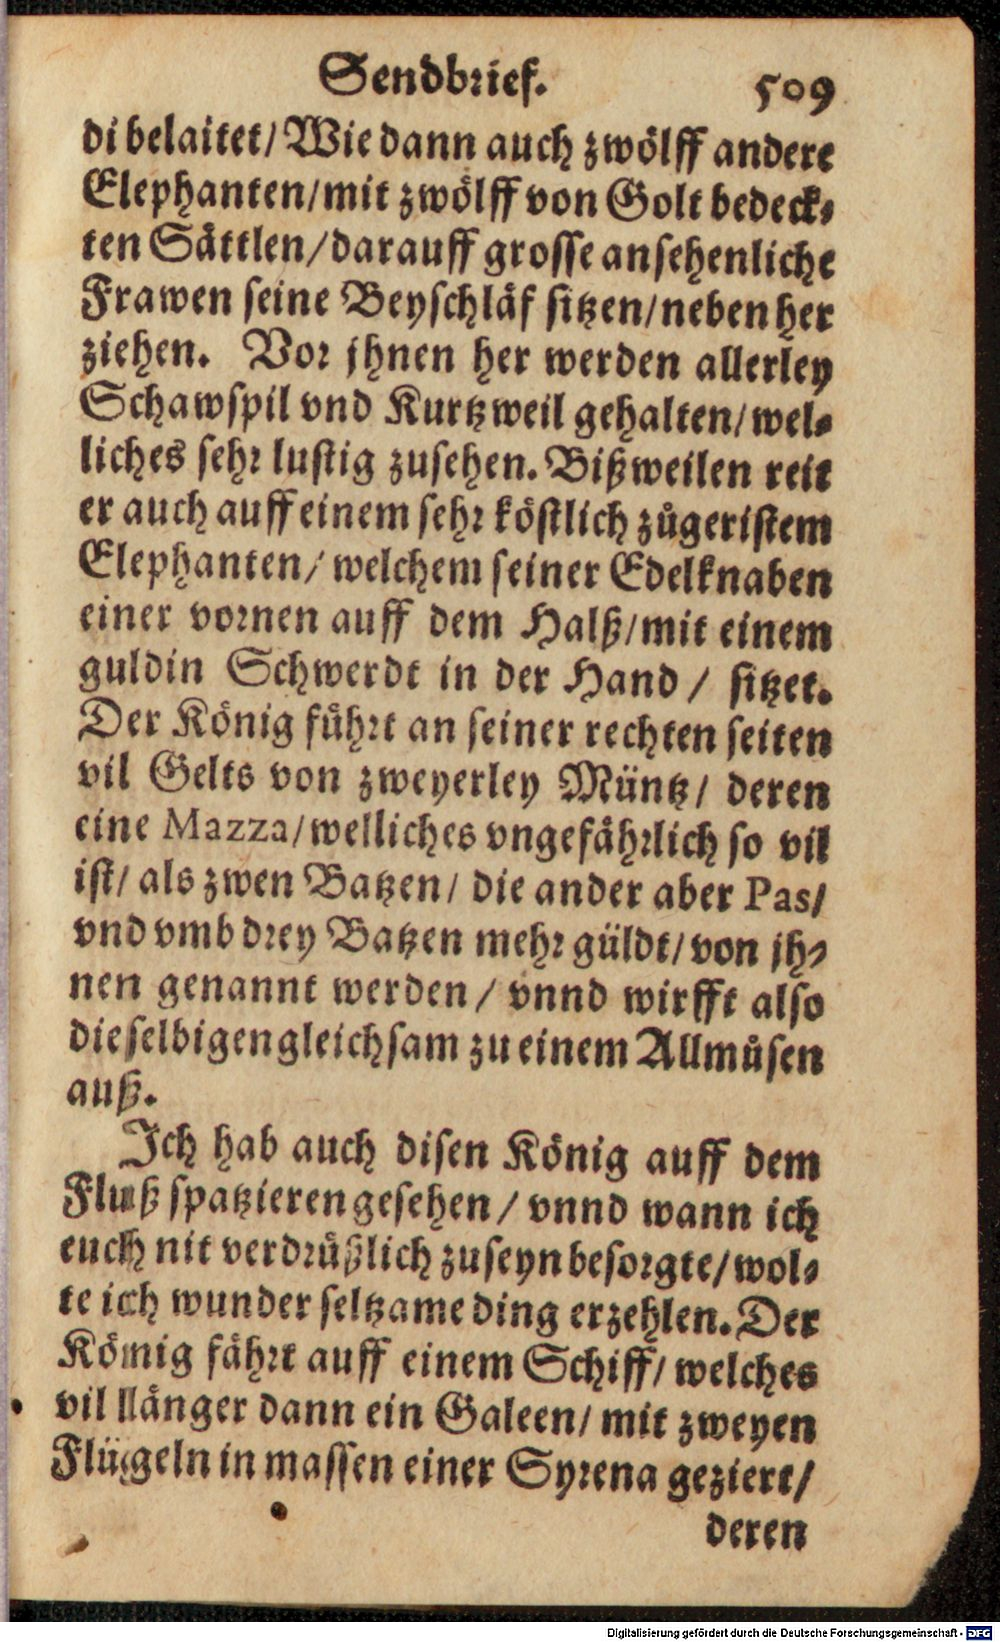 Sendbrief. 509
di belaitet/ Wie dann auch zwölff andere
Elephanten/mit zwölff von Golt bedeck⸗
ten Sättlen/darauff grosse ansehenliche
Frawen seine Beyschläf sitzen/neben her
ziehen. Vor jhnen her werden allerley
Schawspil vnd Kurtzweil gehalten/wel⸗
liches sehr lustig zusehen. Bißweilen reit
er auch auff einem sehr köstlich zůgeristem
Elephanten/ welchem seiner Edelknaben
einer vornen auff dem Halß/mit einem
guldin Schwerdt in der Hand / sitzet.
Der König führt an seiner rechten seiten
vil Gelts von zweyerley Müntz/ deren
eine Mazza/welliches vngefährlich so vil
ist/ als zwen Batzen/ die ander aber Pas/
vnd vmb drey Batzen mehr güldt/von jh⸗
nen genannt werden/ vnnd wirfft also
dieselbigen gleichsam zu einem Allmůsen
auß.
Ich hab auch disen König auff dem
Fluß spatzieren gesehen/ vnnd wann ich
euch nit verdrüßlich zuseyn besorgte/wol⸗
te ich wunder seltzame ding erzehlen. Der
König fährt auff einem Schiff/ welches
vil länger dann ein Galeen/ mit zweyen
Flügeln in massen einer Syrena geziert/
deren
Digitalisierung gefördert durch die Deutsche Forschungsgemeinschaft - DFG